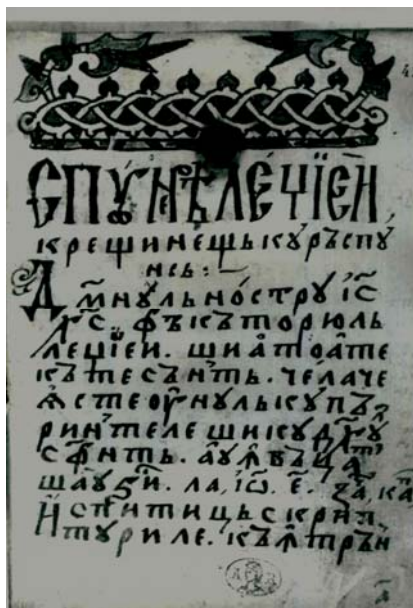 ЄПꙊНѢЛЕЦЇЕЙ,
крещинещькꙋрѣспꙋ
нсь:—
Дм҃нꙋльностру І҆с҃
Хс҃. фъкъторюль
леџїеи. шиатоате
кѫтесънть. челаче
ꙗ҆стеоунꙋлькꙋпъ
ринтелешикꙋдх҃ꙋ
сф҃нть. аꙋꙟвъцат
шаꙋзи. ла, іѡ҃. е҃. за҃, ка
Испитицьскрип
тꙋриле. къꙟтрън